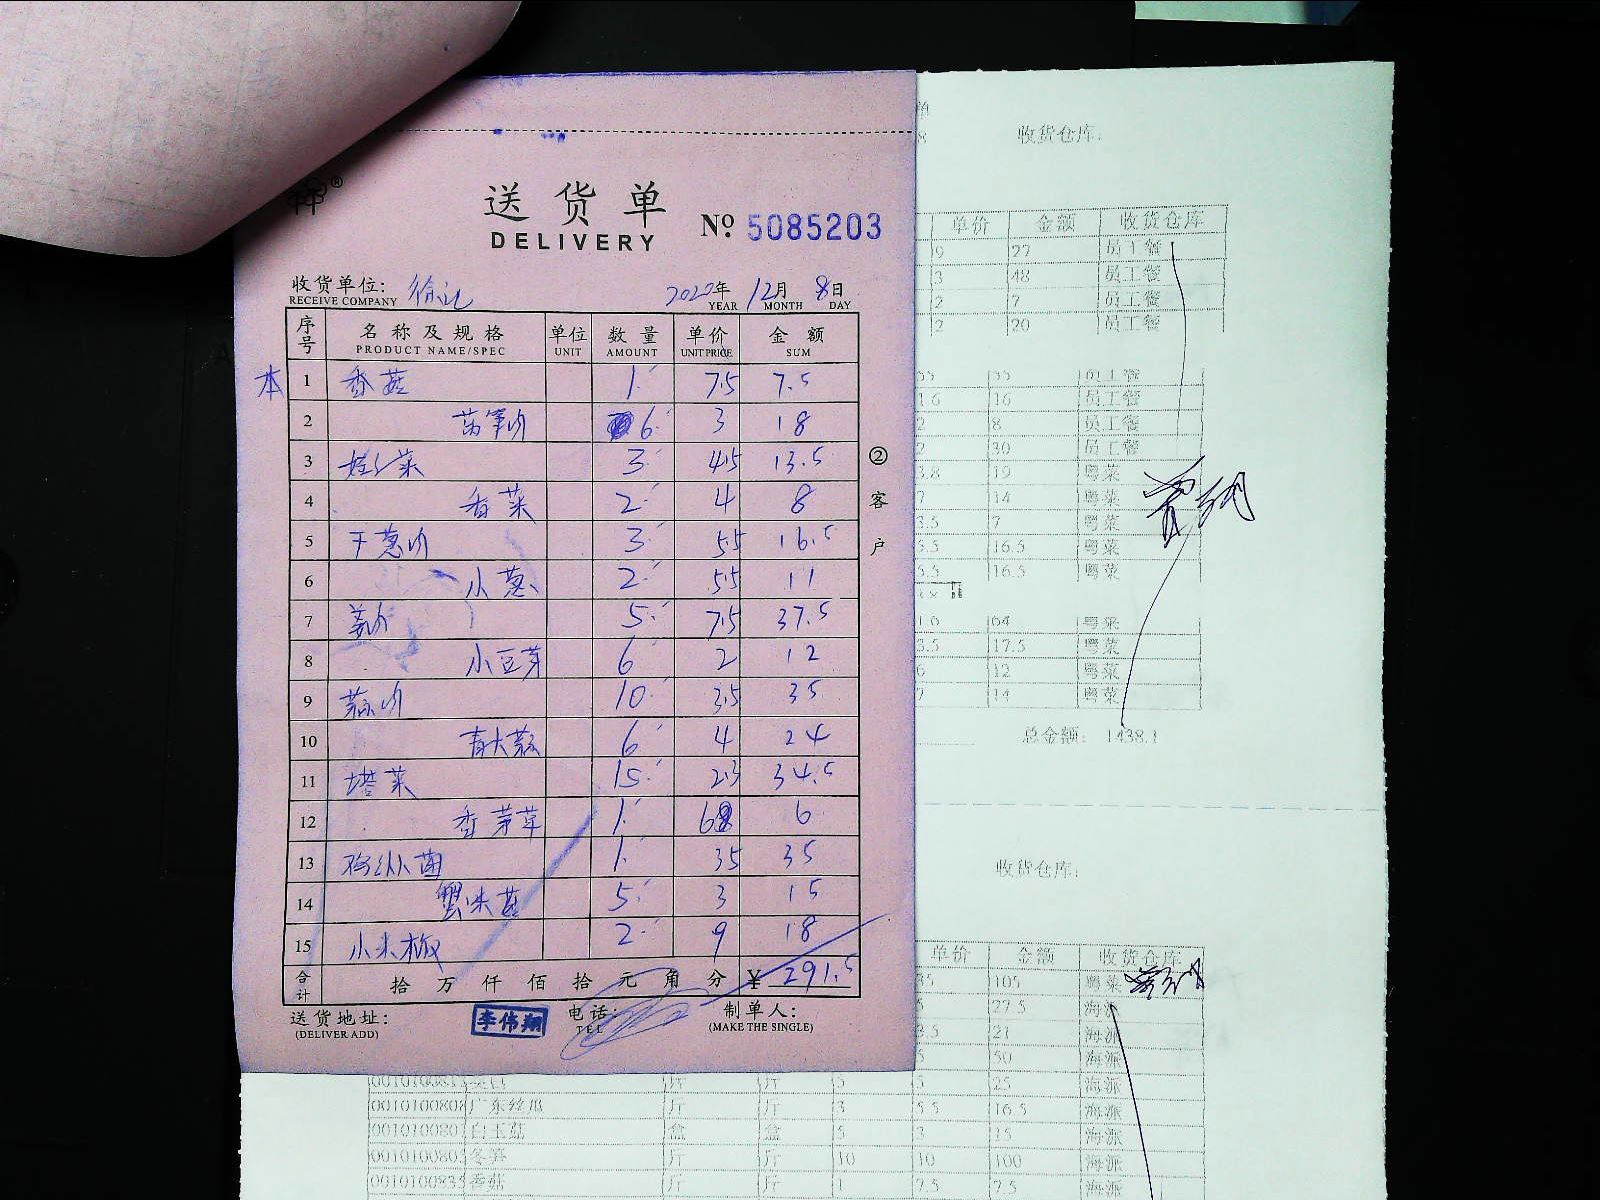 送货单
DELIVERY
№ 5085203
收货单位: 徐记
RECEIVE COMPANY
2020年 12月 8日
YEAR MONTH DAY
序号 名称及规格 单位 数量 单价 金额
PRODUCT NAME/SPEC UNIT AMOUNT UNIT PRICE SUM
本 1 香菇 1 7.5 7.5
2 6 3 18
3 娃娃菜 3 4.5 13.5
4 香菜 2 4 8
5 干葱 3 5.5 16.5
6 小葱 2 5.5 11
7 姜 5 7.5 37.5
8 小豆芽 6 2 12
9 蒜 10 3.5 35
10 青大蒜 6 4 24
11 塔菜 15 2.3 34.5
12 香茅草 1 6 6
13 1 35 35
14 蟹味菇 5 3 15
15 小米椒 2 9 18
合计 拾 万 仟 佰 拾 元 角 分 ¥ 291.5
送货地址:
(DELIVER ADD)
李伟翔
电话:
TEL
制单人:
(MAKE THE SINGLE)
② 客户
单
收货仓库:
单价 金额 收货仓库
9 27 员工餐
3 48 员工餐
2 7 员工餐
2 20 员工餐
员工餐
16 16 员工餐
2 8 员工餐
2 30 员工餐
3.8 19 粤菜
7 14 粤菜
3.5 7 粤菜
5.5 16.5 粤菜
5.5 16.5 粤菜
16 64 粤菜
3.5 17.5 粤菜
6 12 粤菜
7 14 粤菜
总金额: 1438.1
收货仓库:
单价 金额 收货仓库
35 105 粤菜
27.5 海派
3.5 21 海派
5 50 海派
5 5 25 海派
广东丝瓜 斤 斤 3 5.5 16.5 海派
白玉菇 盒 盒 5 3 15 海派
冬笋 斤 斤 10 10 100 海派
香菇 斤 斤 1 7.5 7.5 海派